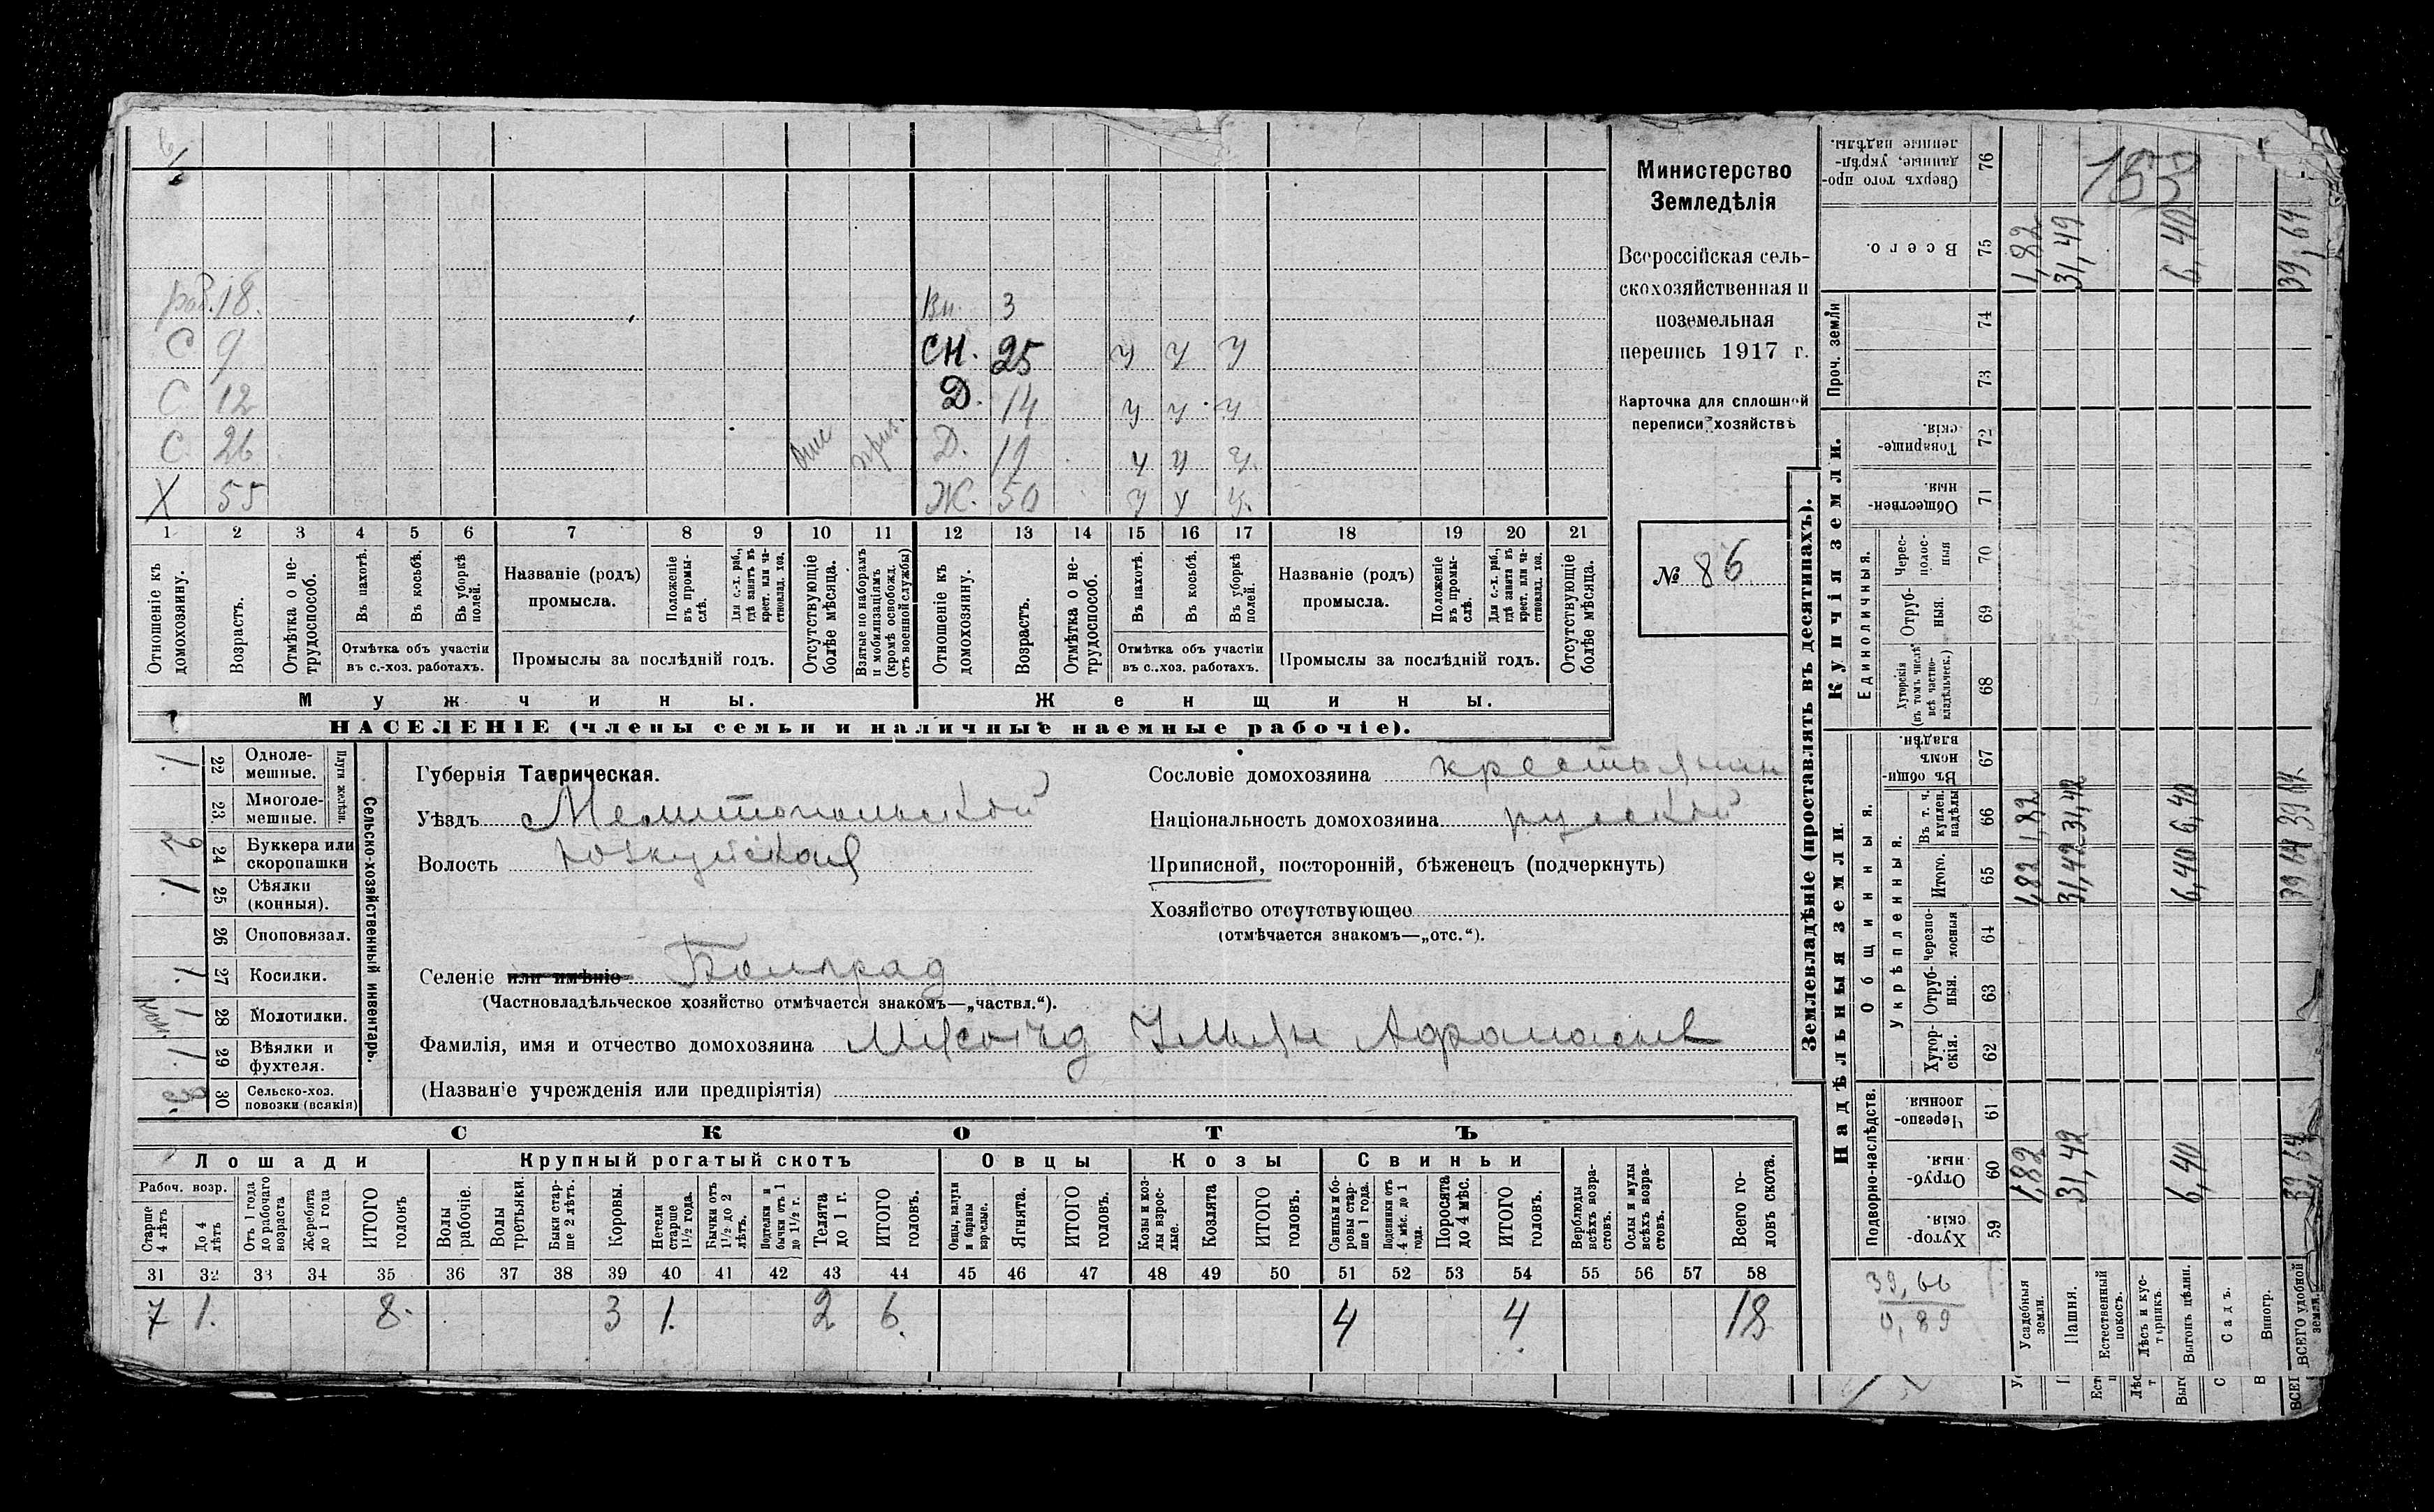 раб. 18. Вн. 3
С 9 СН. 25 У У У
С 12 Д. 14 У У У
С 26 Д. 19 У У У
Х 55 Ж. 50 У У У
1 2 3 4 5 6 7 8 9 10 11 12 13 14 15 16 17 18 19 20 21
Отношеніе къ домохозяину.
Возрастъ.
Отмѣтка о нетрудоспособ.
Въ пахотѣ.
Въ косьбѣ.
Въ уборкѣ полей.
Отмѣтка объ участіи
въ с.-хоз. работахъ.
Названіе (родъ)
промысла.
Положеніе въ промыслѣ.
Для с.-х. раб., гдѣ занятъ въ крест. или частновлад. хоз.
Промыслы за послѣдній годъ.
Отсутствующіе болѣе мѣсяца.
Взятые по наборамъ и мобилизаціямъ (кромѣ освобожд. отъ военной службы)
Отношеніе къ домохозяину.
Возрастъ.
Отмѣтка о нетрудоспособ.
Въ пахотѣ.
Въ косьбѣ.
Въ уборкѣ полей.
Отмѣтка объ участіи
въ с.-хоз. работахъ.
Названіе (родъ)
промысла.
Положеніе въ промыслѣ.
Для с.-х. раб., гдѣ занята въ крест. или частновлад. хоз.
Промыслы за послѣдній годъ.
Отсутствующіе болѣе мѣсяца.
Мужчины. Женщины.
НАСЕЛЕНІЕ (члены семьи и наличные наемные рабочіе).
Министерство
Земледѣлія
Всероссійская сель-
скохозяйственная и
поземельная
перепись 1917 г.
Карточка для сплошной
переписи хозяйствъ
№ 86
Сельско-хозяйственный инвентарь.
Плуги желѣзн.
1 22 Одноле-
мешные.
23 Многоле-
мешные.
2 24 Буккера или
скоропашки
1 25 Сѣялки
(конныя).
26 Споповязал.
1 27 Косилки.
1 28 Молотилки.
1 29 Вѣялки и
фухтеля.
3 30 Сельско-хоз.
повозки (всякія)
Губернія Таврическая.
Уѣздъ Мелитопольской
Волость Юзкуйская
Селеніе или имѣніе Болград
(Частновладѣльческое хозяйство отмѣчается знакомъ—„частвл.“).
Сословіе домохозяина крестьянин
Національность домохозяина руской
Приписной, посторонній, бѣженецъ (подчеркнуть)
Хозяйство отсутствующее
(отмѣчается знакомъ—„отс.“).
Фамилія, имя и отчество домохозяина Афанасьев
(Названіе учрежденія или предпріятія)
СКОТЪ
Лошади Крупный рогатый скотъ Овцы Козы Свиньи
Рабоч. возр.
Старше 4 лѣтъ
До 4 лѣтъ
Отъ 1 года до рабочаго возраста
Жеребята до 1 года
ИТОГО головъ
Волы рабочіе.
Волы третьяки.
Быки старше 2 лѣтъ.
Коровы.
Нетели старше 1½ года.
Бычки отъ 1½ до 2 лѣтъ.
Подтелки и бычки отъ 1 до 1½ г.
Телята до 1 г.
ИТОГО головъ.
Овцы, валухи и бараны взрослые.
Ягнята.
ИТОГО головъ.
Козы и козлы взрослые.
Козлята
ИТОГО головъ.
Свиньи и боровы старше 1 года.
Подсвинки отъ 4 мѣс. до 1 года.
Поросята до 4 мѣс.
ИТОГО головъ.
Верблюды всѣхъ возрастовъ.
Ослы и мулы всѣхъ возрастовъ.
Всего головъ скота.
31 32 33 34 35 36 37 38 39 40 41 42 43 44 45 46 47 48 49 50 51 52 53 54 55 56 57 58
7 1. 8. 3 1. 2 6. 4 4 18
Землевладѣніе (проставлять въ десятинахъ).
Купчія земли.
Проч. земли
Единоличныя.
Надѣльныя земли.
Общинныя.
Укрѣпленныя.
Подворно-наслѣдств.
Сверхъ того проданные, укрѣпленные надѣлы. 76 153
Всего. 75 1,82 31,49 6,40 39,64
74
73
Товарищескія. 72
Общественныя. 71
Черезполосныя 70
Отрубныя. 69
Хуторскія (въ томъ числѣ всѣ частновладѣльческ.) 68
Въ общинномъ владѣн. 67
Въ т. ч. куплен. надѣлы 66 1,82 31,42 6,40 39,64
Итого. 65 1,82 31,42 6,40 39,64
Черезполосныя 64
Отрубныя. 63
Хуторскія. 62
Черезполосныя. 61
Отрубныя. 60 1,82 31,42 6,40 39,64
Хуторскія. 59
39,66
0,89
Усадебныя земли.
Пашня.
Естественный покосъ.
Лѣсъ и кустарникъ.
Выгонъ цѣлин.
Садъ.
Виногр.
ВСЕГО удобной земли.